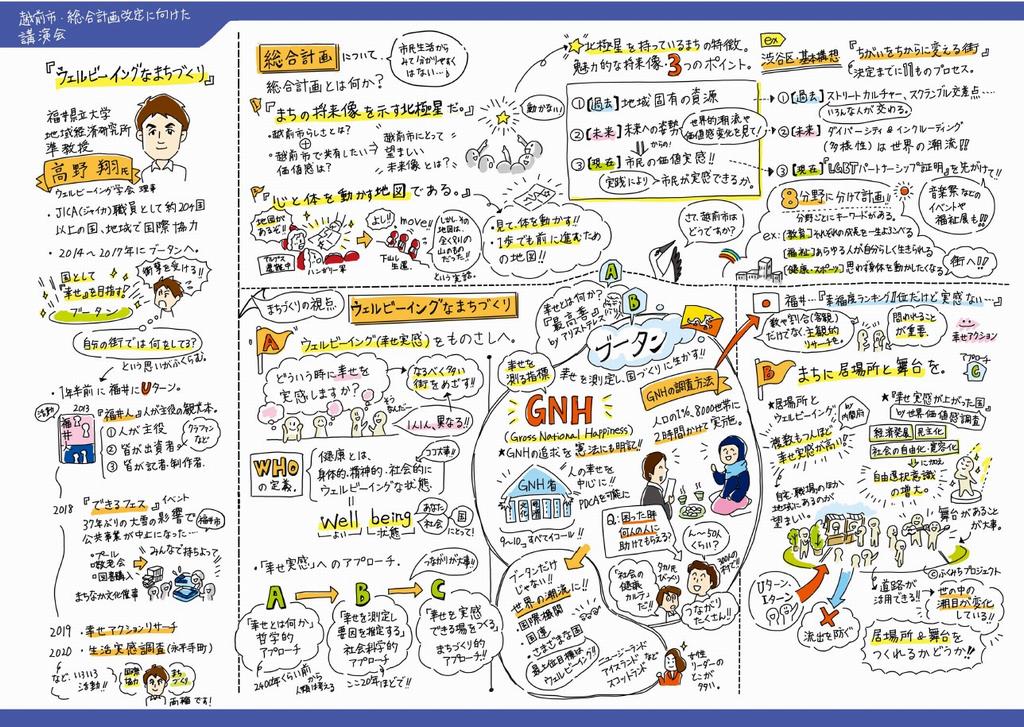 越前市・総合計画改定に向けた
講演会
『ウェルビーイングなまちづくり』
福井県立大学
地域経済研究所
准教授
高野 翔氏
ウェルビーイング学会 理事
・JICA(ジャイカ)職員として約20ヶ国
以上の国、地域で国際協力
・2014〜2017年にブータンへ。
国として
『幸せ』を目指す!
ブータン
衝撃を受ける!!
自分の街では何をしてる?
という思いがふくらむ。
・1年半前に福井にUターン。
活動
2013
福井人
『福井人』人が主役の観光本。
① 人が主役
② 皆が出資者
③ 皆が記者・制作者。
クラファン
など
2018
『できるフェス』イベント
37年ぶりの大雪の影響で
公共事業が中止になった…
福井市
・プール
・敬老会
・図書購入
みんなで持ちよって
まちなか文化催事
2019 ・幸せアクションリサーチ
2020 ・生活実感調査(永平寺町)
など、いろいろ
活動!!
国際
協力
まち
づくり
両輪です!
総合計画について。
市民生活から
みて分かりやすく
はない…
総合計画とは何か?
『まちの将来像を示す北極星だ。』
・越前市らしさとは?
⊕
・越前市で共有したい
価値感は?
越前市にとって
望ましい
未来像とは?
動かない!
『心と体を動かす地図である。』
地図が
あるぞ!!
アルプス
遭難中
ハンガリー軍
よし!!
move!!
下山し
生還。
しかしその
地図は、
全く別の
山のもの
だった!!
という実話。
・見て、体を動かす!!
・1歩でも前に進むため
の地図!!
北極星を持っているまちの特徴。
魅力的な将来像 3つのポイント。
①【過去】地域固有の資源
②【未来】未来への姿勢
世界的潮流や
価値感変化を見て!
からの!
③【現在】市民の価値実感!!
実践により
市民が実感できるか。
ex
渋谷区・基本構想
『ちがいをちからに変える街』
決定までに11ものプロセス。
①【過去】ストリートカルチャー、スクランブル交差点…
いろんな人が交わる。
②【未来】ダイバーシティ&インクルーディング
(多様性)は世界の潮流!!
③【現在】『LGBTパートナーシップ証明』を先がけて!!
音楽祭などの
イベントや
福祉展も!!
8分野に分けて計画!!
分野ごとにキーワードがある。
ex:【教育】それぞれの成長を一生よろこべる
【福祉】あらゆる人が自分らしく生きられる
【健康・スポーツ】思わず身体を動かしたくなる
街へ!!
さて、越前市は
どうですか?
まちづくりの視点。
ウェルビーイングなまちづくり
A
ウェルビーイング(幸せ実感)をものさしへ。
どういう時に幸せを
実感しますか?
なるべく多い
街をめざす!!
そうなんだ〜
1人1人、異なる!!
WHO
の定義。
健康とは、
身体的・精神的・社会的に
ウェルビーイングな状態
ココ大事!!
Well being
良い 状態
あなた
社会
国
にとって!
・『幸せ実感』へのアプローチ。
つながりが大事!!
A
B
C
『幸せとは何か』
哲学的
アプローチ
2400年くらい前から
人類は考える
『幸せを測定し
要因を推定する』
社会科学的
アプローチ
ここ20年ほどで!!
『幸せを実感
できる場をつくる』
まちづくり的
アプローチ!!
A
幸せとは何か?
『最高善』
by アリストテレス
B
ブータン
幸せを測定し、国づくりに生かす!!
幸せを
測る指標
GNH
(Gross National Happiness)
★GNHの追求を憲法にも明記!!
GNH省
9〜10_すべてスコール!!
人の幸せを
中心に!!
PDCAを可能に
GNHの調査方法
人口の1%、8000世帯に
2時間かけて実施。
Q:困った時
何人の人に
助けてもらえる?
ん〜〜50人
くらい?
『社会の
健康
カルテ
だ!!』
つながり
たくさん!!
ブータンだけ
じゃない!!
世界の潮流に!!
国際機関
・国連
・さまざまな国
最上位目標は
ウェルビーイング!!
ニュージーランド
アイスランド
スコットランド
など
女性
リーダーの
とこが
多い。
福井…『幸福度ランキング1位だけど実感ない…』
数や割合(客観)
だけでなく主観的
リサーチを。
問われることが
重要。
幸せアクション
アプローチ
C
B
まちに居場所と舞台を。
★居場所と
ウェルビーイング
by 内閣府
複数もつほど
幸せ実感が高い!
自宅、職場のほか
地域にあるのが
望ましい
★『幸せ実感が上がった国』
by 世界価値感調査
経済発展
民主化
社会の自由化・寛容化
に加え
自由選択意識
の増大。
舞台があること
が大事。
©ふくみちプロジェクト
Uターン、
Iターン
流出を防ぐ
道路が
活用できる!!
世の中の
潮目が変化
している!!
居場所&舞台を
つくれるかどうか!!